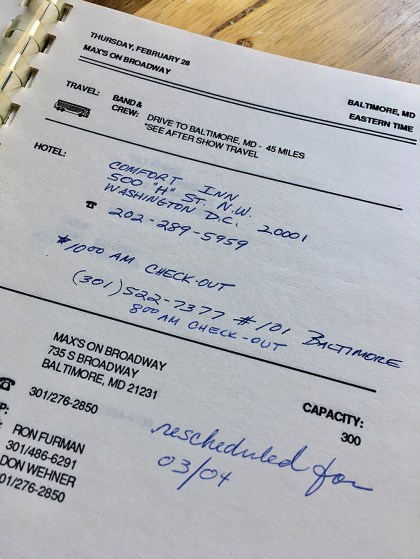 THURSDAY, FEBRUARY 28
MAX'S ON BROADWAY
BALTIMORE, MD
EASTERN TIME
TRAVEL:
BAND &
CREW: DRIVE TO BALTIMORE, MD - 45 MILES
*SEE AFTER SHOW TRAVEL
HOTEL:
COMFORT INN
500 "H" ST. N.W.
WASHINGTON D.C. 20001
202-289-5959
*1000 AM CHECK-OUT
(301) 522-7377 #101 BALTIMORE
800 AM CHECK-OUT
MAX'S ON BROADWAY
735 S BROADWAY
BALTIMORE, MD 21231
301/276-2850
CAPACITY:
300
P:
RON FURMAN
301/486-6291
DON WEHNER
01/276-2850
rescheduled for
03/04